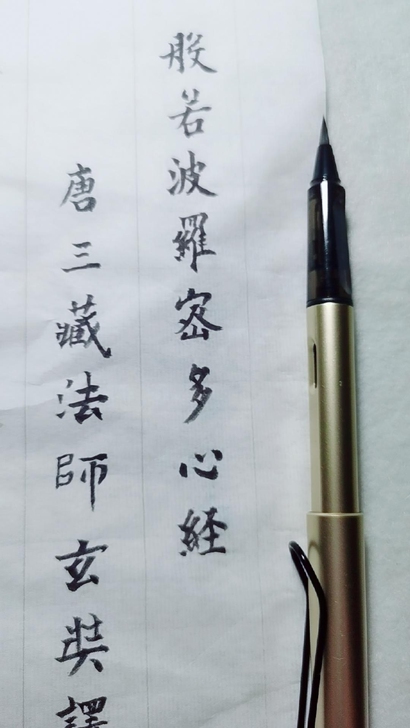 般若波羅密多心経
唐三藏法師玄奘譯